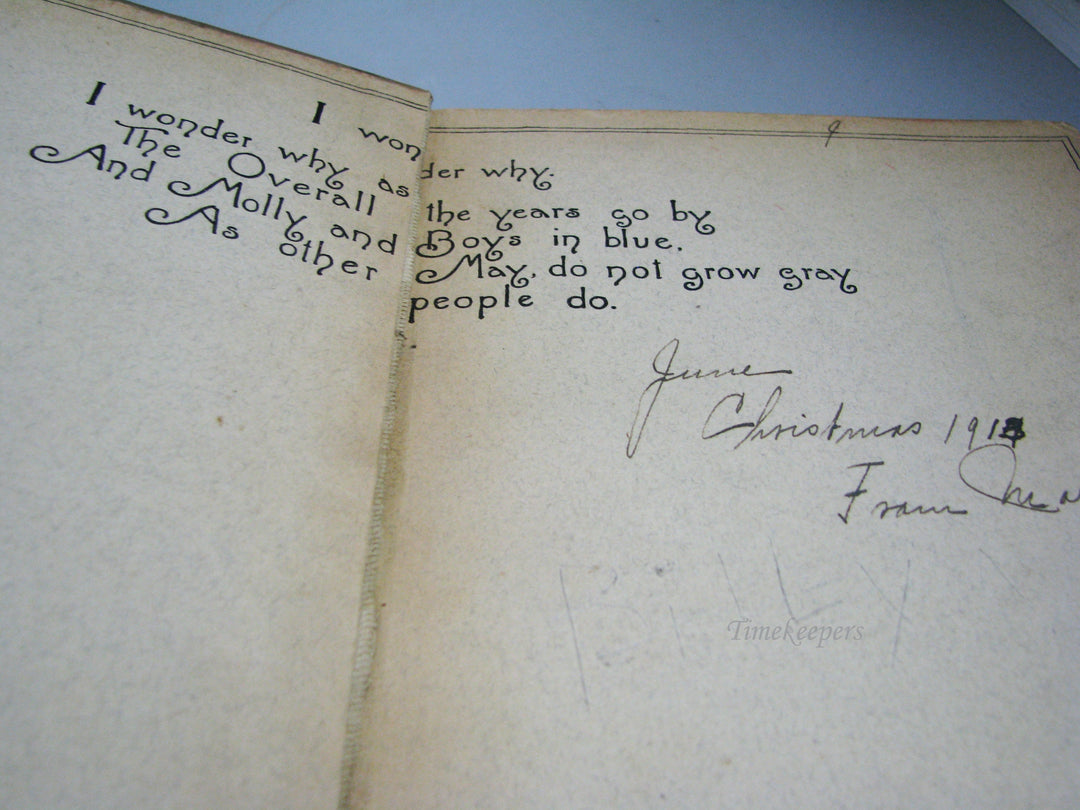 I wonder why.
I wonder why as the years go by
The Overall Boys in blue,
And Molly and May, do not grow gray
As other people do.
June
Christmas 191
From
Timekeepers